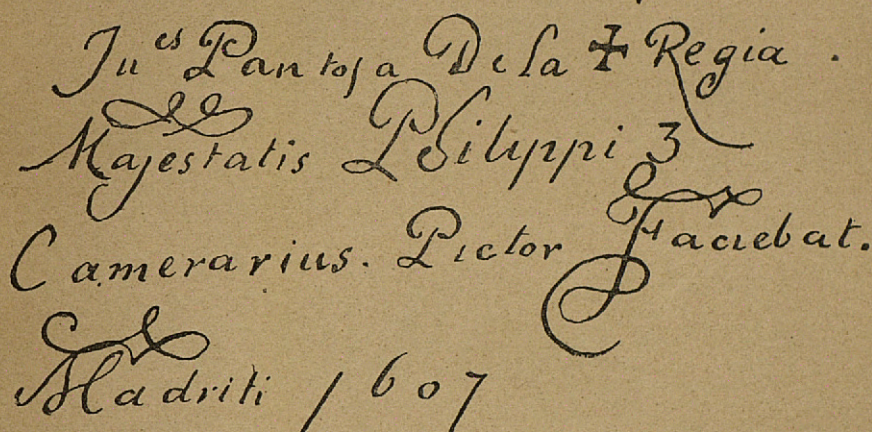 Ju^es Pantoja De la ✝ Regia.
Majestatis Philyppi 3
Camerarius. Pictor Faciebat.
Madriti 1607